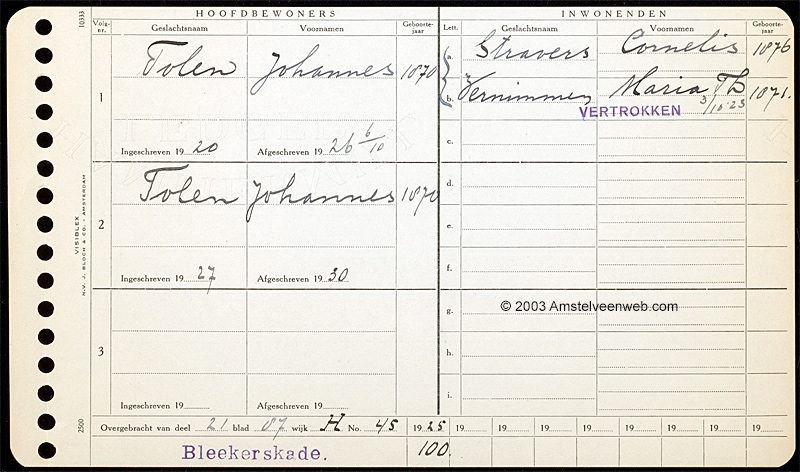 HOOFDBEWONERS
INWONENDEN
Volg-nr.
Geslachtsnaam
Voornamen
Geboorte-jaar
Lett.
Geslachtsnaam
Voornamen
Geboorte-jaar
1
Tolen Johannes 1870
Ingeschreven 1920 Afgeschreven 1926 6/10
2
Tolen Johannes 1870
Ingeschreven 1927 Afgeschreven 1930
3
Ingeschreven 19 Afgeschreven 19
a. Stravers Cornelis 1876
b. Vernimmen Maria Th 1871.
VERTROKKEN 3/10-25
c.
d.
e.
f.
g.
© 2003 Amstelveenweb.com
h.
i.
Overgebracht van deel 21 blad 87 wijk H No. 45 1925 19 19 19 19 19 19 19 19
Bleekerskade. 100.
10333
VISIBLEX
N.V. J. BLOCH & CO. - AMSTERDAM
2500